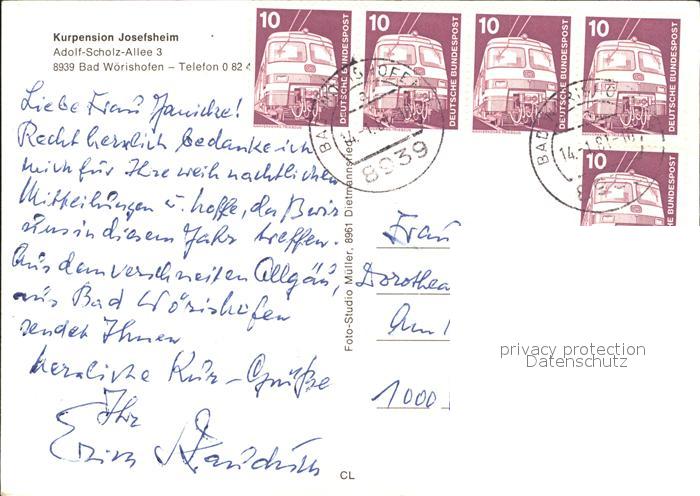 Kurpension Josefsheim
Adolf-Scholz-Allee 3
8939 Bad Wörishofen – Telefon 0 824
Liebe Frau Janicke!
Recht herzlich bedanke ich
mich für Ihre weihnachtlichen
Mitteilungen u. hoffe, das wir
uns in diesem Jahr treffen.
Aus dem verschneiten Allgäu,
aus Bad Wörishofen
sendet Ihnen
herzliche Kur-Grüße
Ihr
Erwin
Foto-Studio Müller, 8961 Dietmannsried
CL
10 DEUTSCHE BUNDESPOST
10 DEUTSCHE BUNDESPOST
10 DEUTSCHE BUNDESPOST
10 DEUTSCHE BUNDESPOST
10 BUNDESPOST
BAD WÖRISHOFEN
14.-1.81
8939
BAD WÖRISHOFEN
14.-1.81-18
Frau
Dorothea
Am
1000
privacy protection
Datenschutz